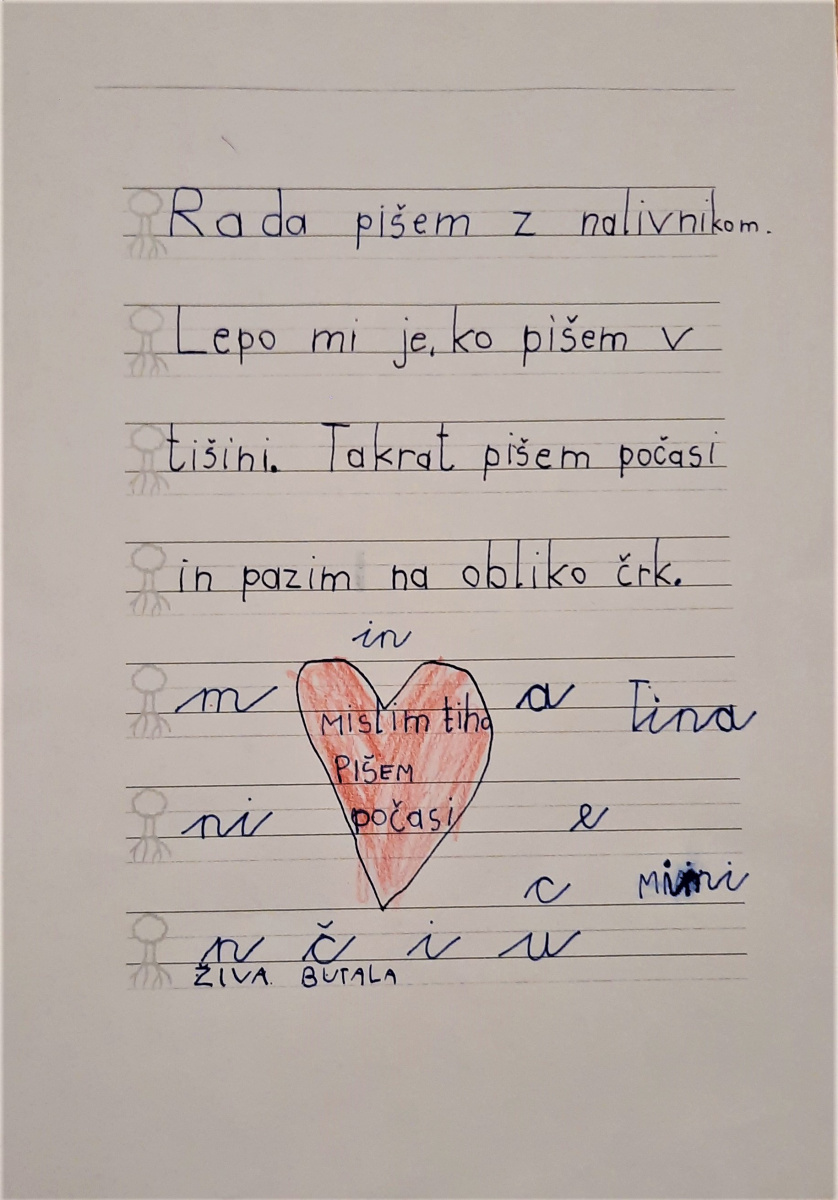 Rada pišem z nalivnikom.
Lepo mi je, ko pišem v
tišini. Takrat pišem počasi
in pazim na obliko črk.
in
m
Mislim tiho
PIŠEM
počasi
a
Tina
ni
e
c
n č i u
ŽIVA BUTALA